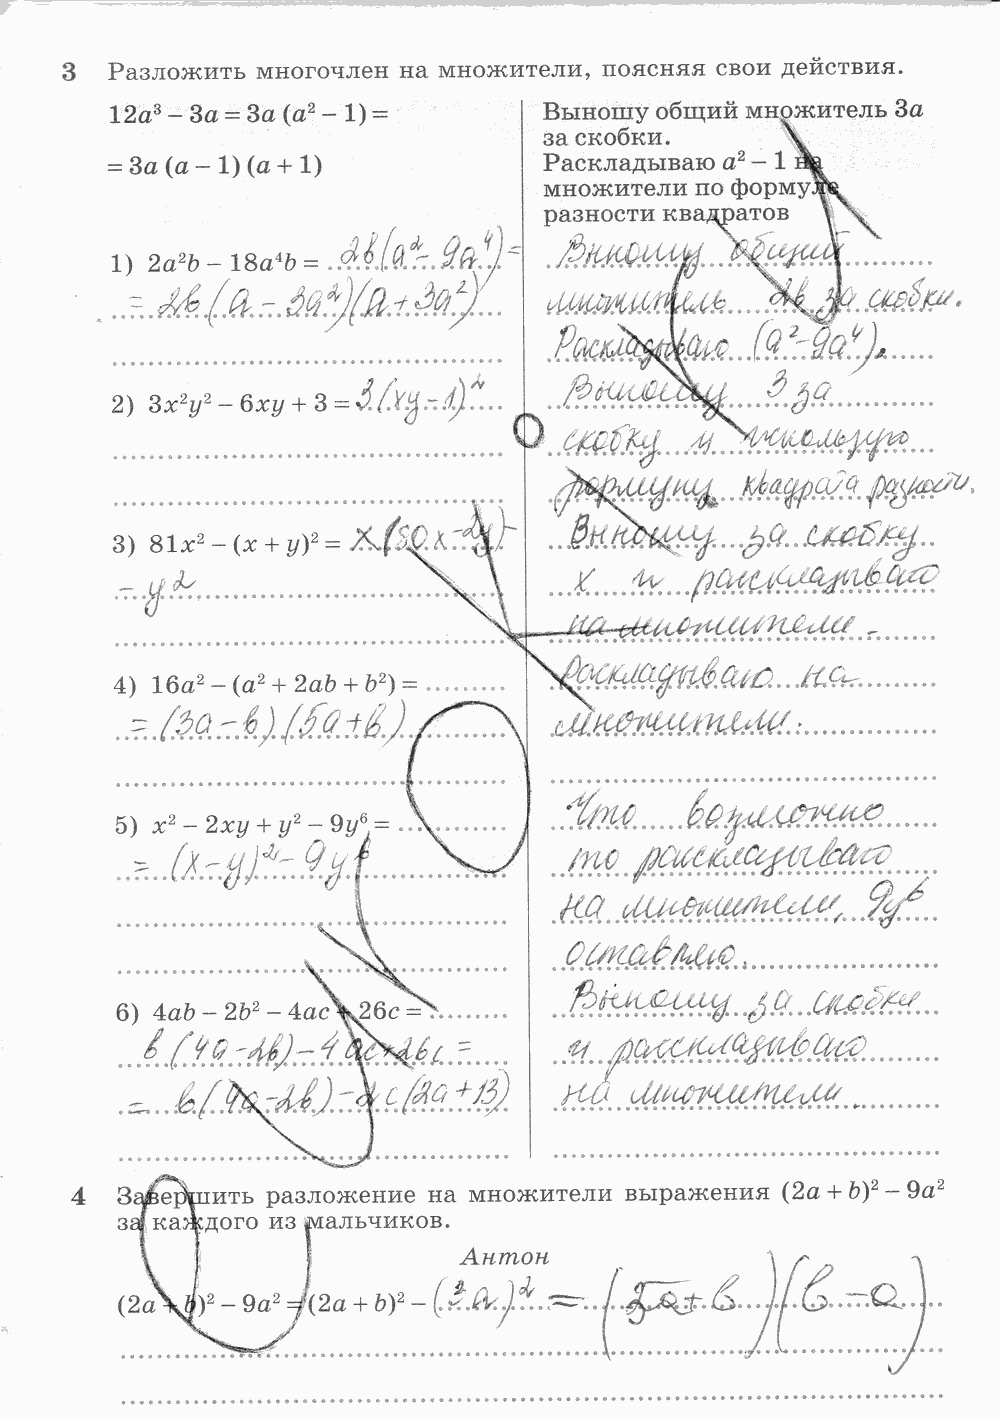 3 Разложить многочлен на множители, поясняя свои действия.
12a³ – 3a = 3a (a² – 1) =
= 3a (a – 1) (a + 1)
Выношу общий множитель 3a
за скобки.
Раскладываю a² – 1 на
множители по формуле
разности квадратов
1) 2a²b – 18a⁴b = 2b(a² – 9a⁴) =
= 2b(a – 3a²)(a + 3a²)
Вынношу общий
множитель 2b за скобки.
Раскладываю (a² – 9a⁴).
2) 3x²y² – 6xy + 3 = 3(xy – 1)²
Выношу 3 за
скобку и использую
формулу квадрата разности.
3) 81x² – (x + y)² = x(80x – 2y) –
– y²
Вынношу за скобку
x и расскладываю
на множители.
4) 16a² – (a² + 2ab + b²) =
= (3a – b)(5a + b)
раскладываю на
множители.
5) x² – 2xy + y² – 9y⁶ =
= (x – y)² – 9y⁶
Что возможно
то расскладываю
на множители, 9y⁶
оставляю.
6) 4ab – 2b² – 4ac + 26c =
b(4a – 2b) – 4ac + 26c =
= b(4a – 2b) – 2c(2a + 13)
Выношу за скобки
и расскладываю
на множители.
4 Завершить разложение на множители выражения (2a + b)² – 9a²
за каждого из мальчиков.
Антон
(2a + b)² – 9a² = (2a + b)² – (3a)² = (5a + b)(b – a)